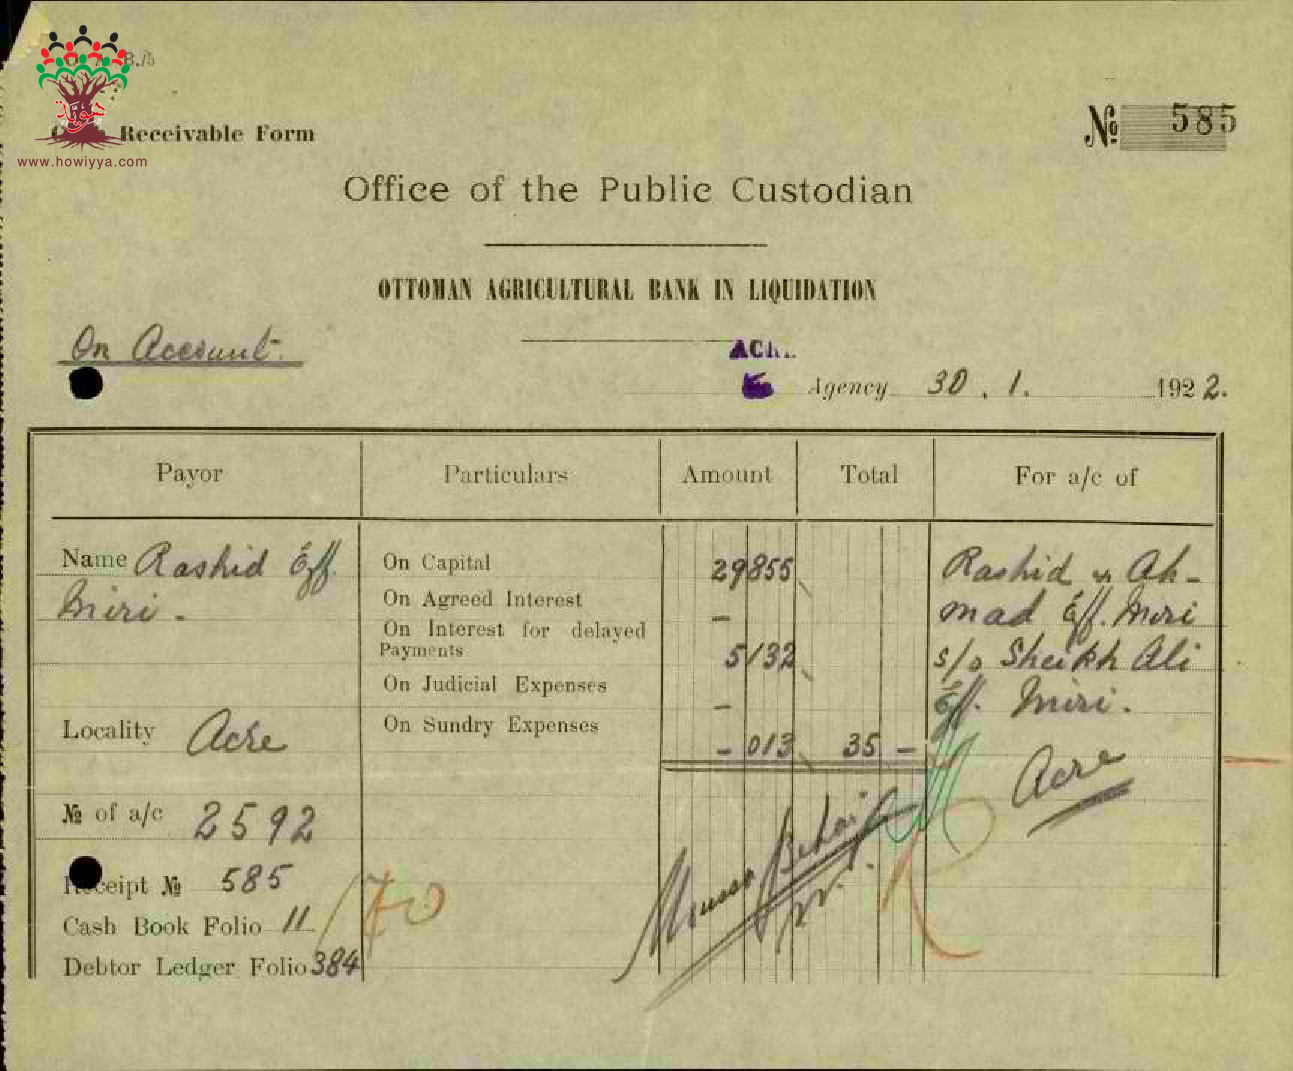 B./5
هوية
www.howiyya.com
Receivable Form
№ 585
Office of the Public Custodian
OTTOMAN AGRICULTURAL BANK IN LIQUIDATION
On Account.
Agency 30. 1. 1922.
Payor Particulars Amount Total For a/c of
Name Rashid Eff. On Capital 29 855 Rashid & Ah-
Miri - On Agreed Interest - mad Eff. Miri
On Interest for delayed
Payments 5 132 s/o Sheikh Ali
On Judicial Expenses - Eff. Miri.
Locality Acre On Sundry Expenses - 013 35 - Acre
№ of a/c 2592
Receipt № 585
Cash Book Folio 11
Debtor Ledger Folio 384